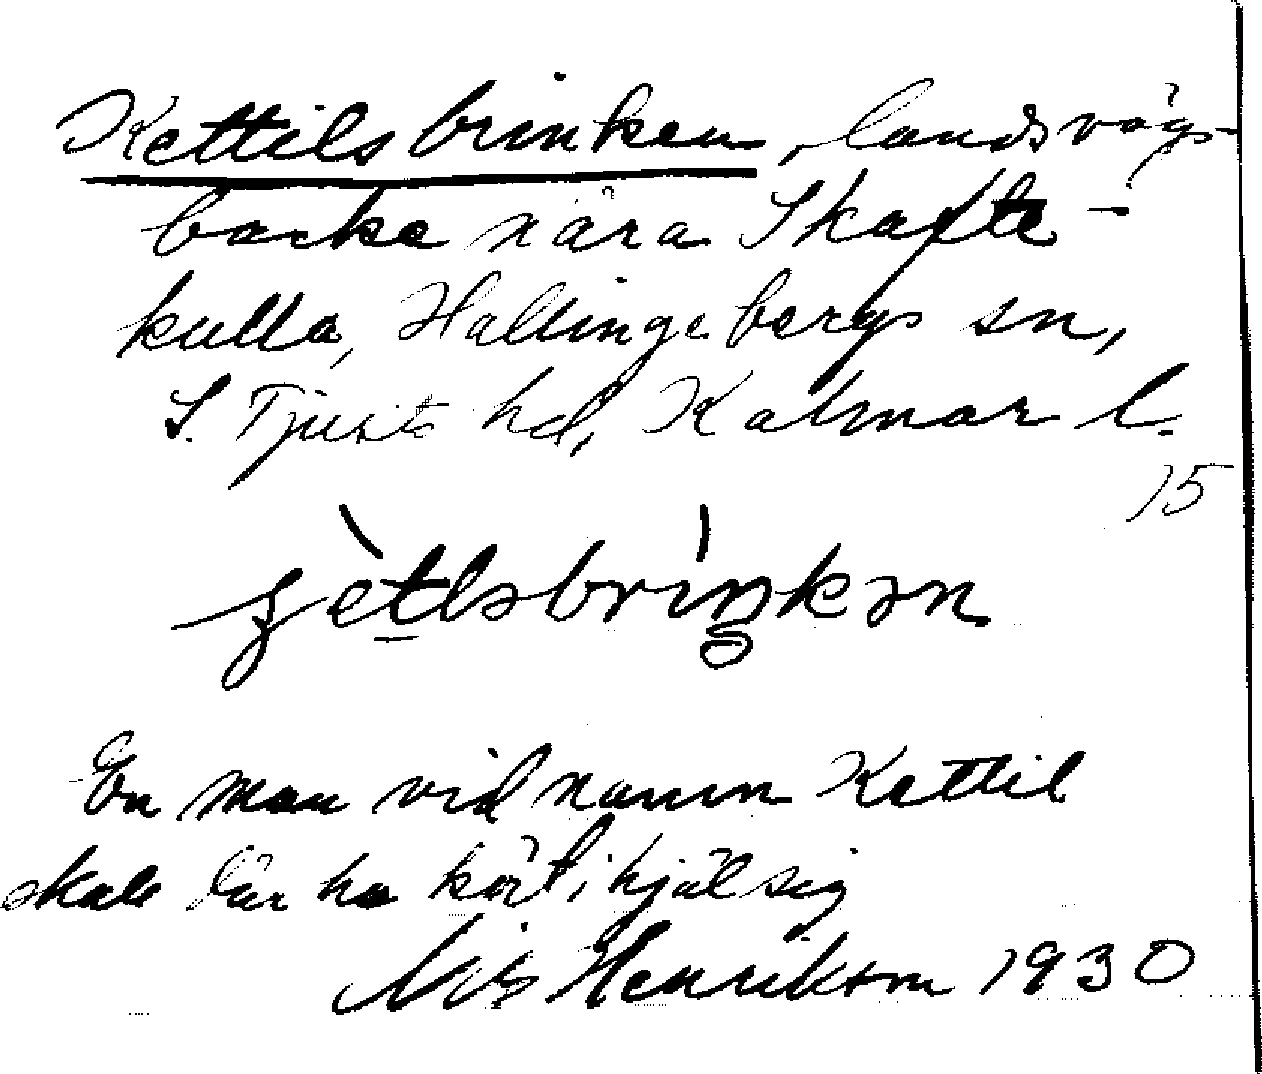 Kettilsbrinken, landsvägs-
backe nära Skafte-
kulla, Hallingebergs sn,
S. Tjusts hd, Kalmar l.
15
En man vid namn Kettil
skall där ha kört ihjäl sig
Nils Henrikson 1930